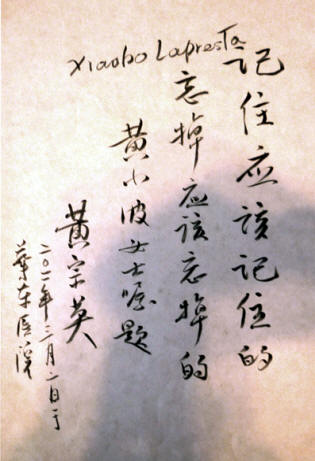 Xiaobo LaPresTa
记住应该记住的
忘掉应该忘掉的
黄小波女士嘱题
黄宗英
二〇一一年三月二日于
华东医院